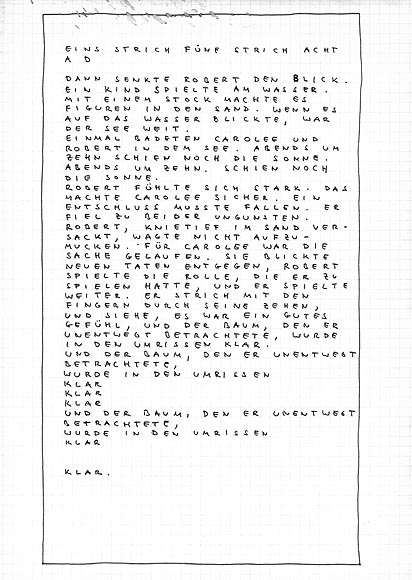 EINS STRICH FÜNF STRICH ACHT
A D
DANN SENKTE ROBERT DEN BLICK.
EIN KIND SPIELTE AM WASSER.
MIT EINEM STOCK MACHTE ES
FIGUREN IN DEN SAND. WENN ES
AUF DAS WASSER BLICKTE, WAR
DER SEE WEIT.
EINMAL BADETEN CAROLEE UND
ROBERT IN DEM SEE. ABENDS UM
ZEHN SCHIEN NOCH DIE SONNE.
ABENDS UM ZEHN. SCHIEN NOCH
DIE SONNE.
ROBERT FÜHLTE SICH STARK. DAS
MACHTE CAROLEE SICHER. EIN
ENTSCHLUSS MUSSTE FALLEN. ER
FIEL ZU BEIDER UNGUNSTEN.
ROBERT, KNIETIEF IM SAND VER-
SACKT, WAGTE NICHT AUFZU-
MUCKEN. FÜR CAROLEE WAR DIE
SACHE GELAUFEN. SIE BLICKTE
NEUEN TATEN ENTGEGEN, ROBERT
SPIELTE DIE ROLLE, DIE ER ZU
SPIELEN HATTE, UND ER SPIELTE
WEITER. ER STRICH MIT DEN
FINGERN DURCH SEINE ZEHEN,
UND SIEHE, ES WAR EIN GUTES
GEFÜHL, UND DER BAUM, DEN ER
UNENTWEGT BETRACHTETE, WURDE
IN DEN UMRISSEN KLAR.
UND DER BAUM, DEN ER UNENTWEGT
BETRACHTETE,
WURDE IN DEN UMRISSEN
KLAR
KLAR
KLAR
UND DER BAUM, DEN ER UNENTWEGT
BETRACHTETE,
WURDE IN DEN UMRISSEN
KLAR
KLAR.